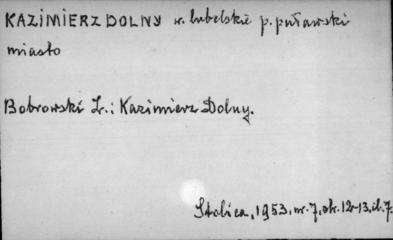 KAZIMIERZ DOLNY w. lubelskie p. puławski
miasto
Bobrowski Z.: Kazimierz Dolny.
Stolica, 1953, nr. 7, str. 12-13, il. 7.